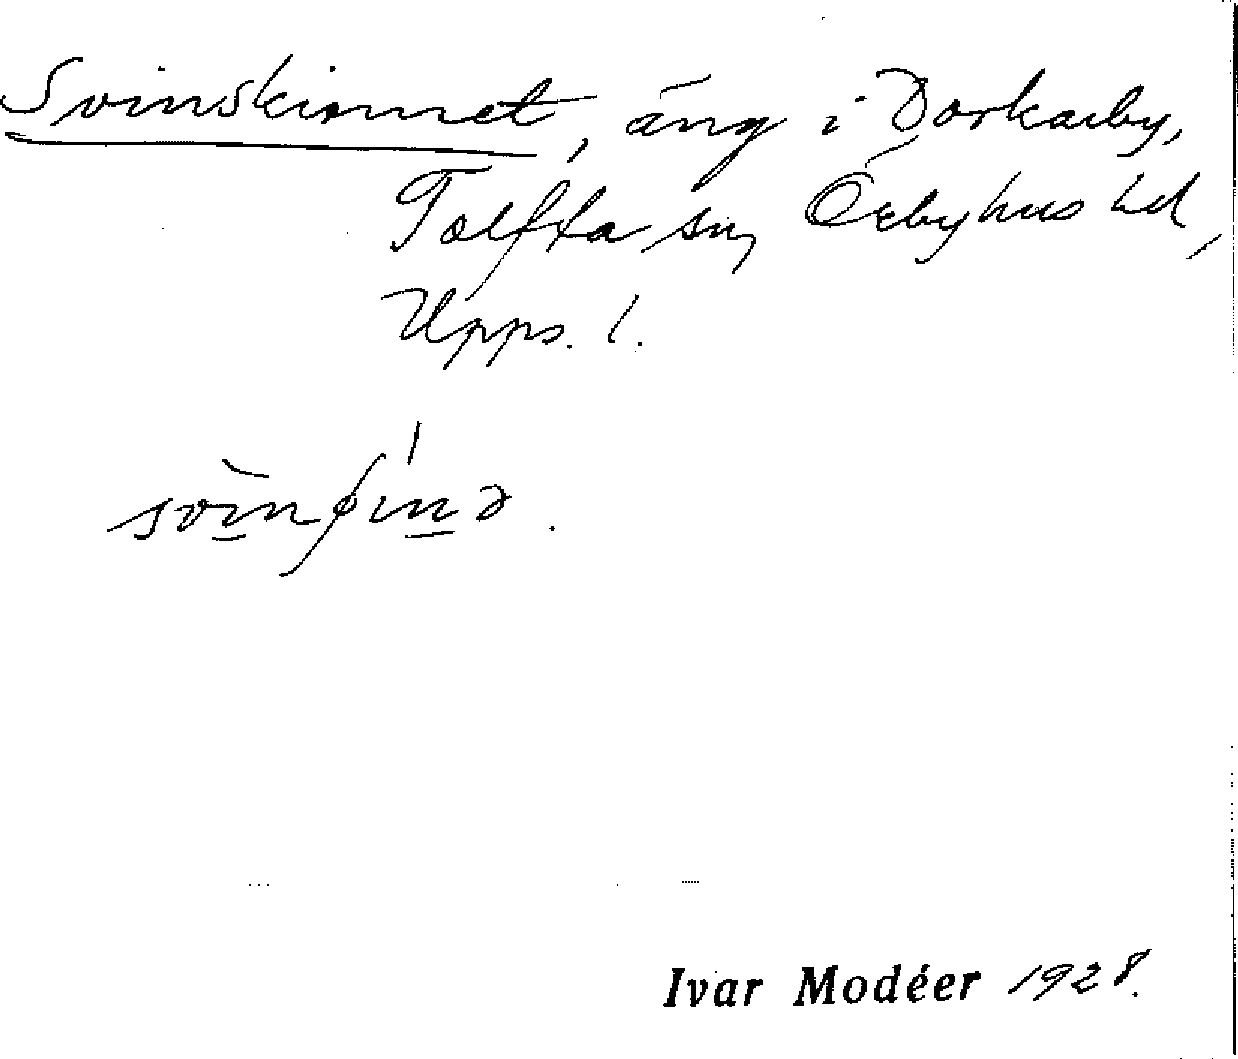 Svinskinnet, äng i Darkarby,
Tolfta sn, Örbyhus hd,
Upps. l.
Ivar Modéer 1928.